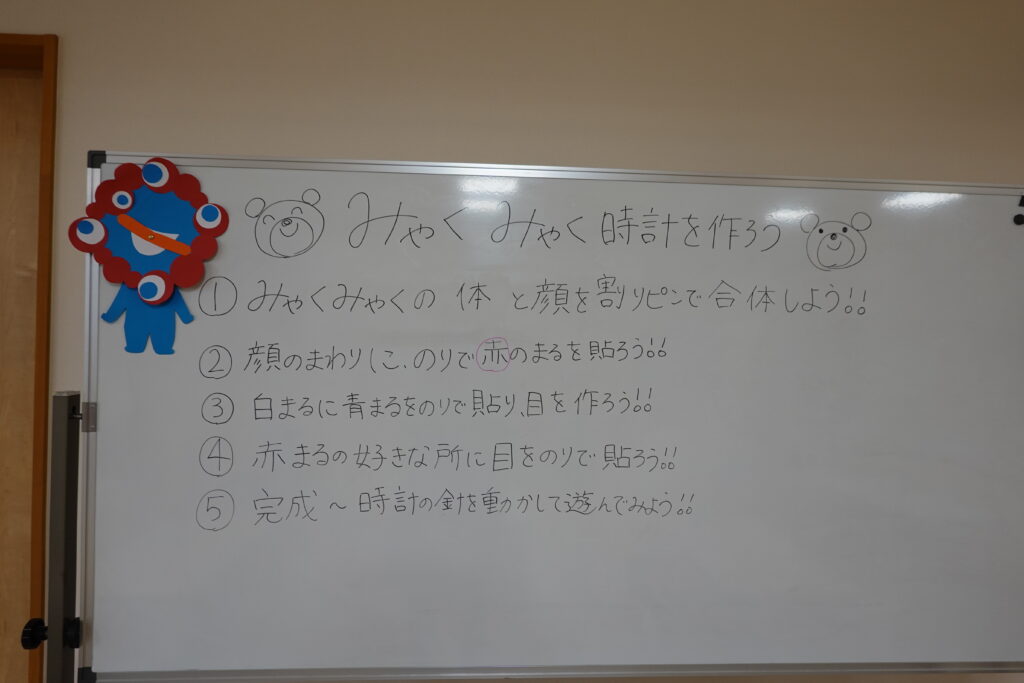 みゃくみゃく時計を作ろう
① みゃくみゃくの体と顔を割りピンで合体しよう!!
② 顔のまわりに、のりで赤のまるを貼ろう!!
③ 白まるに青まるをのりで貼り、目を作ろう!!
④ 赤まるの好きな所に目をのりで貼ろう!!
⑤ 完成~時計の針を動かして遊んでみよう!!